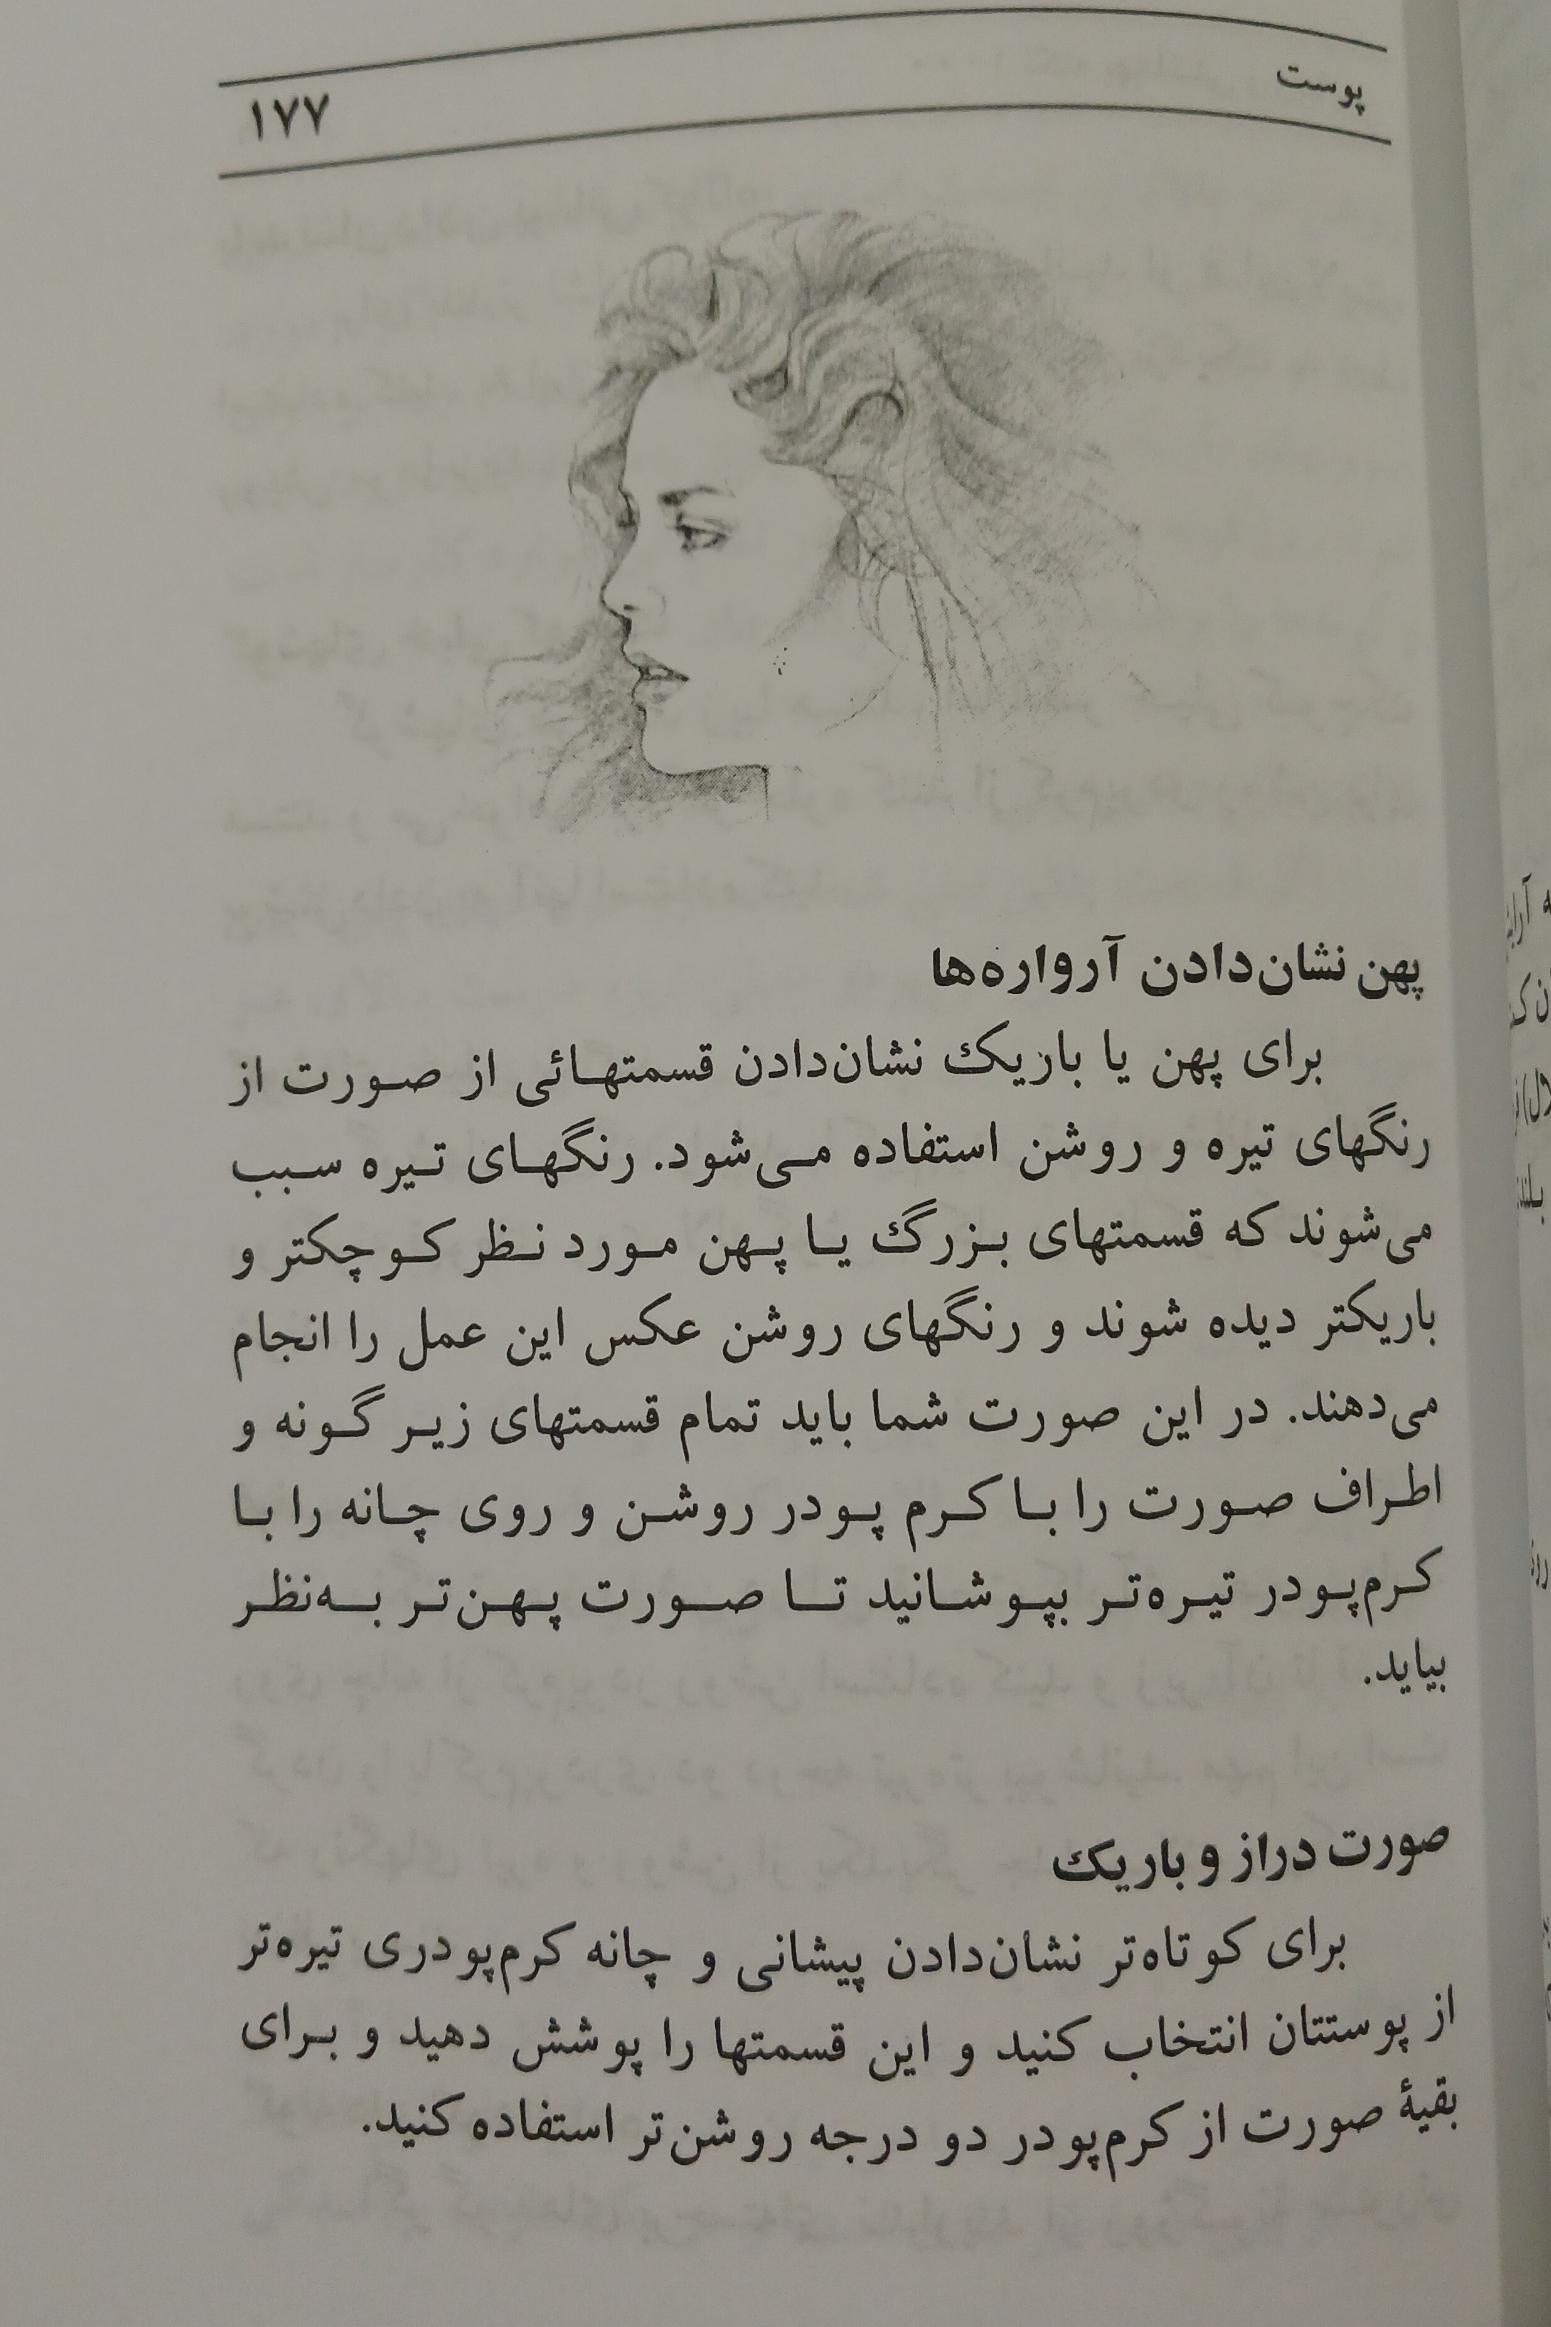 پوست
۱۷۷
پهن نشان‌دادن آرواره‌ها
برای پهن یا باریک نشان‌دادن قسمتهائی از صورت از
رنگهای تیره و روشن استفاده می‌شود. رنگهای تیره سبب
می‌شوند که قسمتهای بزرگ یا پهن مورد نظر کوچکتر و
باریکتر دیده شوند و رنگهای روشن عکس این عمل را انجام
می‌دهند. در این صورت شما باید تمام قسمتهای زیر گونه و
اطراف صورت را با کرم پودر روشن و روی چانه را با
کرم‌پودر تیره‌تر بپوشانید تا صورت پهن‌تر به‌نظر
بیاید.
صورت دراز و باریک
برای کوتاه‌تر نشان‌دادن پیشانی و چانه کرم‌پودری تیره‌تر
از پوستتان انتخاب کنید و این قسمتها را پوشش دهید و برای
بقیهٔ صورت از کرم‌پودر دو درجه روشن‌تر استفاده کنید.